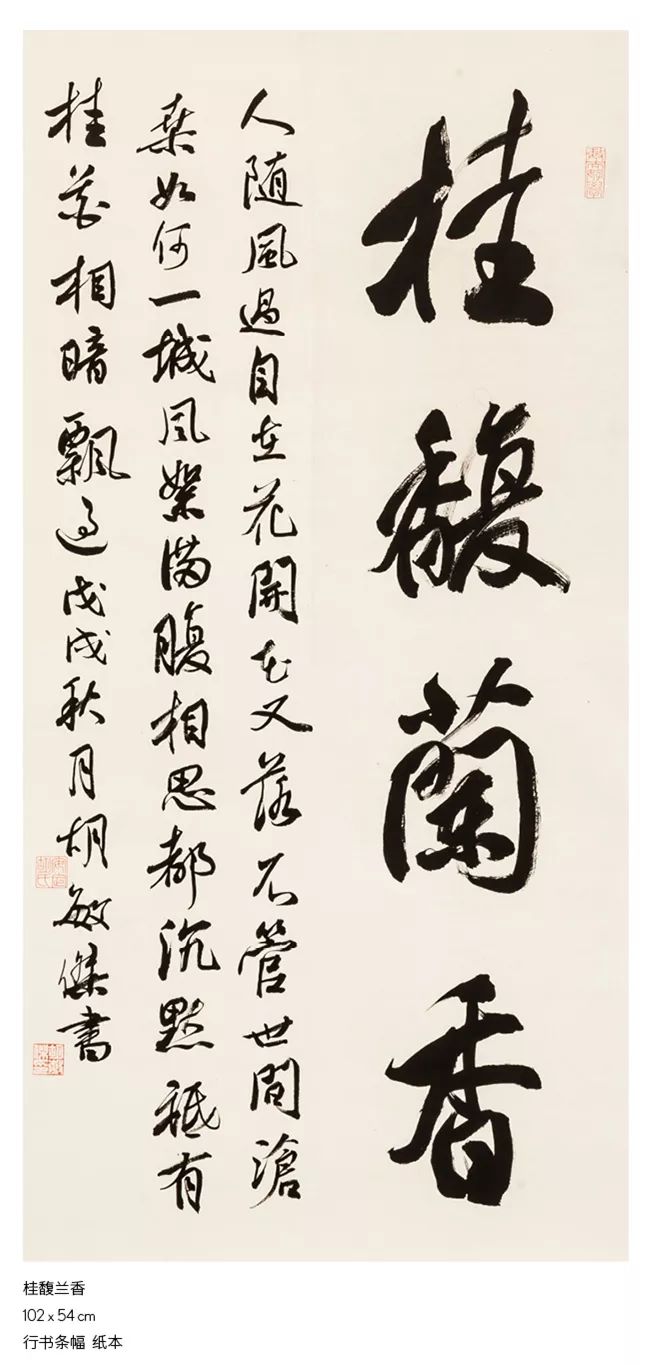 桂馥蘭香
人随風過自在花開花又落不管世間滄
桑如何一城風絮滿腹相思都沉默祗有
桂花相暗飄過戊戌秋月胡敏傑書
桂馥兰香
102 x 54 cm
行书条幅 纸本